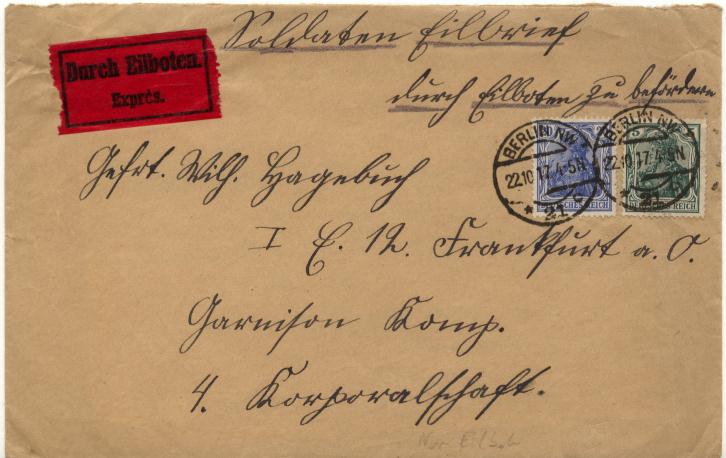 Soldaten Eilbrief
durch Eilboten zu befördern
Durch Eilboten.
Exprès.
BERLIN NW
22.10.17.4-5N
* 21
BERLIN NW
22.10.17.4-5N
* 21
DEUTSCHES REICH
DEUTSCHES REICH
Gefrt. Wilh. Hagebuch
I E. 12. Frankfurt a. O.
Garnison Komp.
4. Korporalschaft.